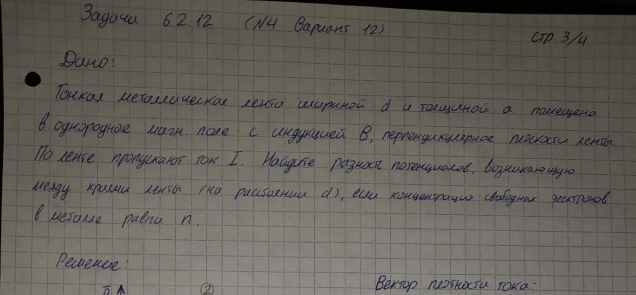 Задача 6.2.12 (N4 Вариант 12)
стр. 3/4
Дано:
Тонкая металлическая лента шириной d и толщиной a помещена
в однородное магн. поле с индукцией B, перпендикулярное плоскости ленты
По ленте пропускают ток I. Найдите разность потенциалов, возникающую
между краями ленты (на расстоянии d), если концентрация свободных электронов
в металле равна n.
Решение:
②
Вектор плотности тока: